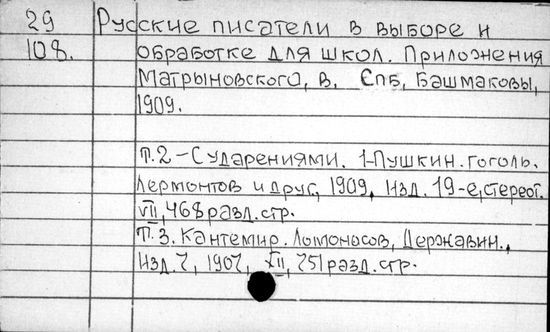 29 Русские писатели в выборе и
108. обработке для школ. Приложения
Матрыновского, В. СПб, Башмаковы,
1909.
Т.2 – С ударениями. 1-Пушкин. Гоголь.
Лермонтов и друг, 1909, Изд. 19-е, стереот.
VII, 468 разд. стр.
Т. 3. Кантемир. Ломоносов, Державин.,
Изд. 7, 1907, XII, 751 разд. стр.